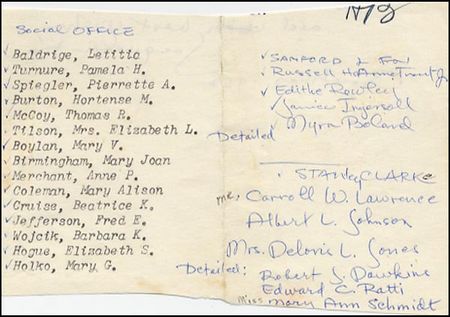 Social OFFICE
Baldrige, Letitia
Turnure, Pamela H.
Spiegler, Pierrette A.
Burton, Hortense M.
McCoy, Thomas R.
Tilson, Mrs. Elizabeth L.
Boylan, Mary V.
Birmingham, Mary Joan
Merchant, Anne P.
Coleman, Mary Alison
Cruise, Beatrice K.
Jefferson, Fred E.
Wojcik, Barbara K.
Hogue, Elizabeth S.
Holko, Mary G.
SANFORD L Fox
Russell H. Armentrout Jr
Edithe Rowley
Janice Ingersoll
Detailed
Myra Boland
STANLey CLARKe
Carroll W. Lawrence
Albert L. Johnson
Mrs. Deloris L. Jones
Detailed: Robert J. Dawkins
Edward C. Ratti
Miss Mary Ann Schmidt